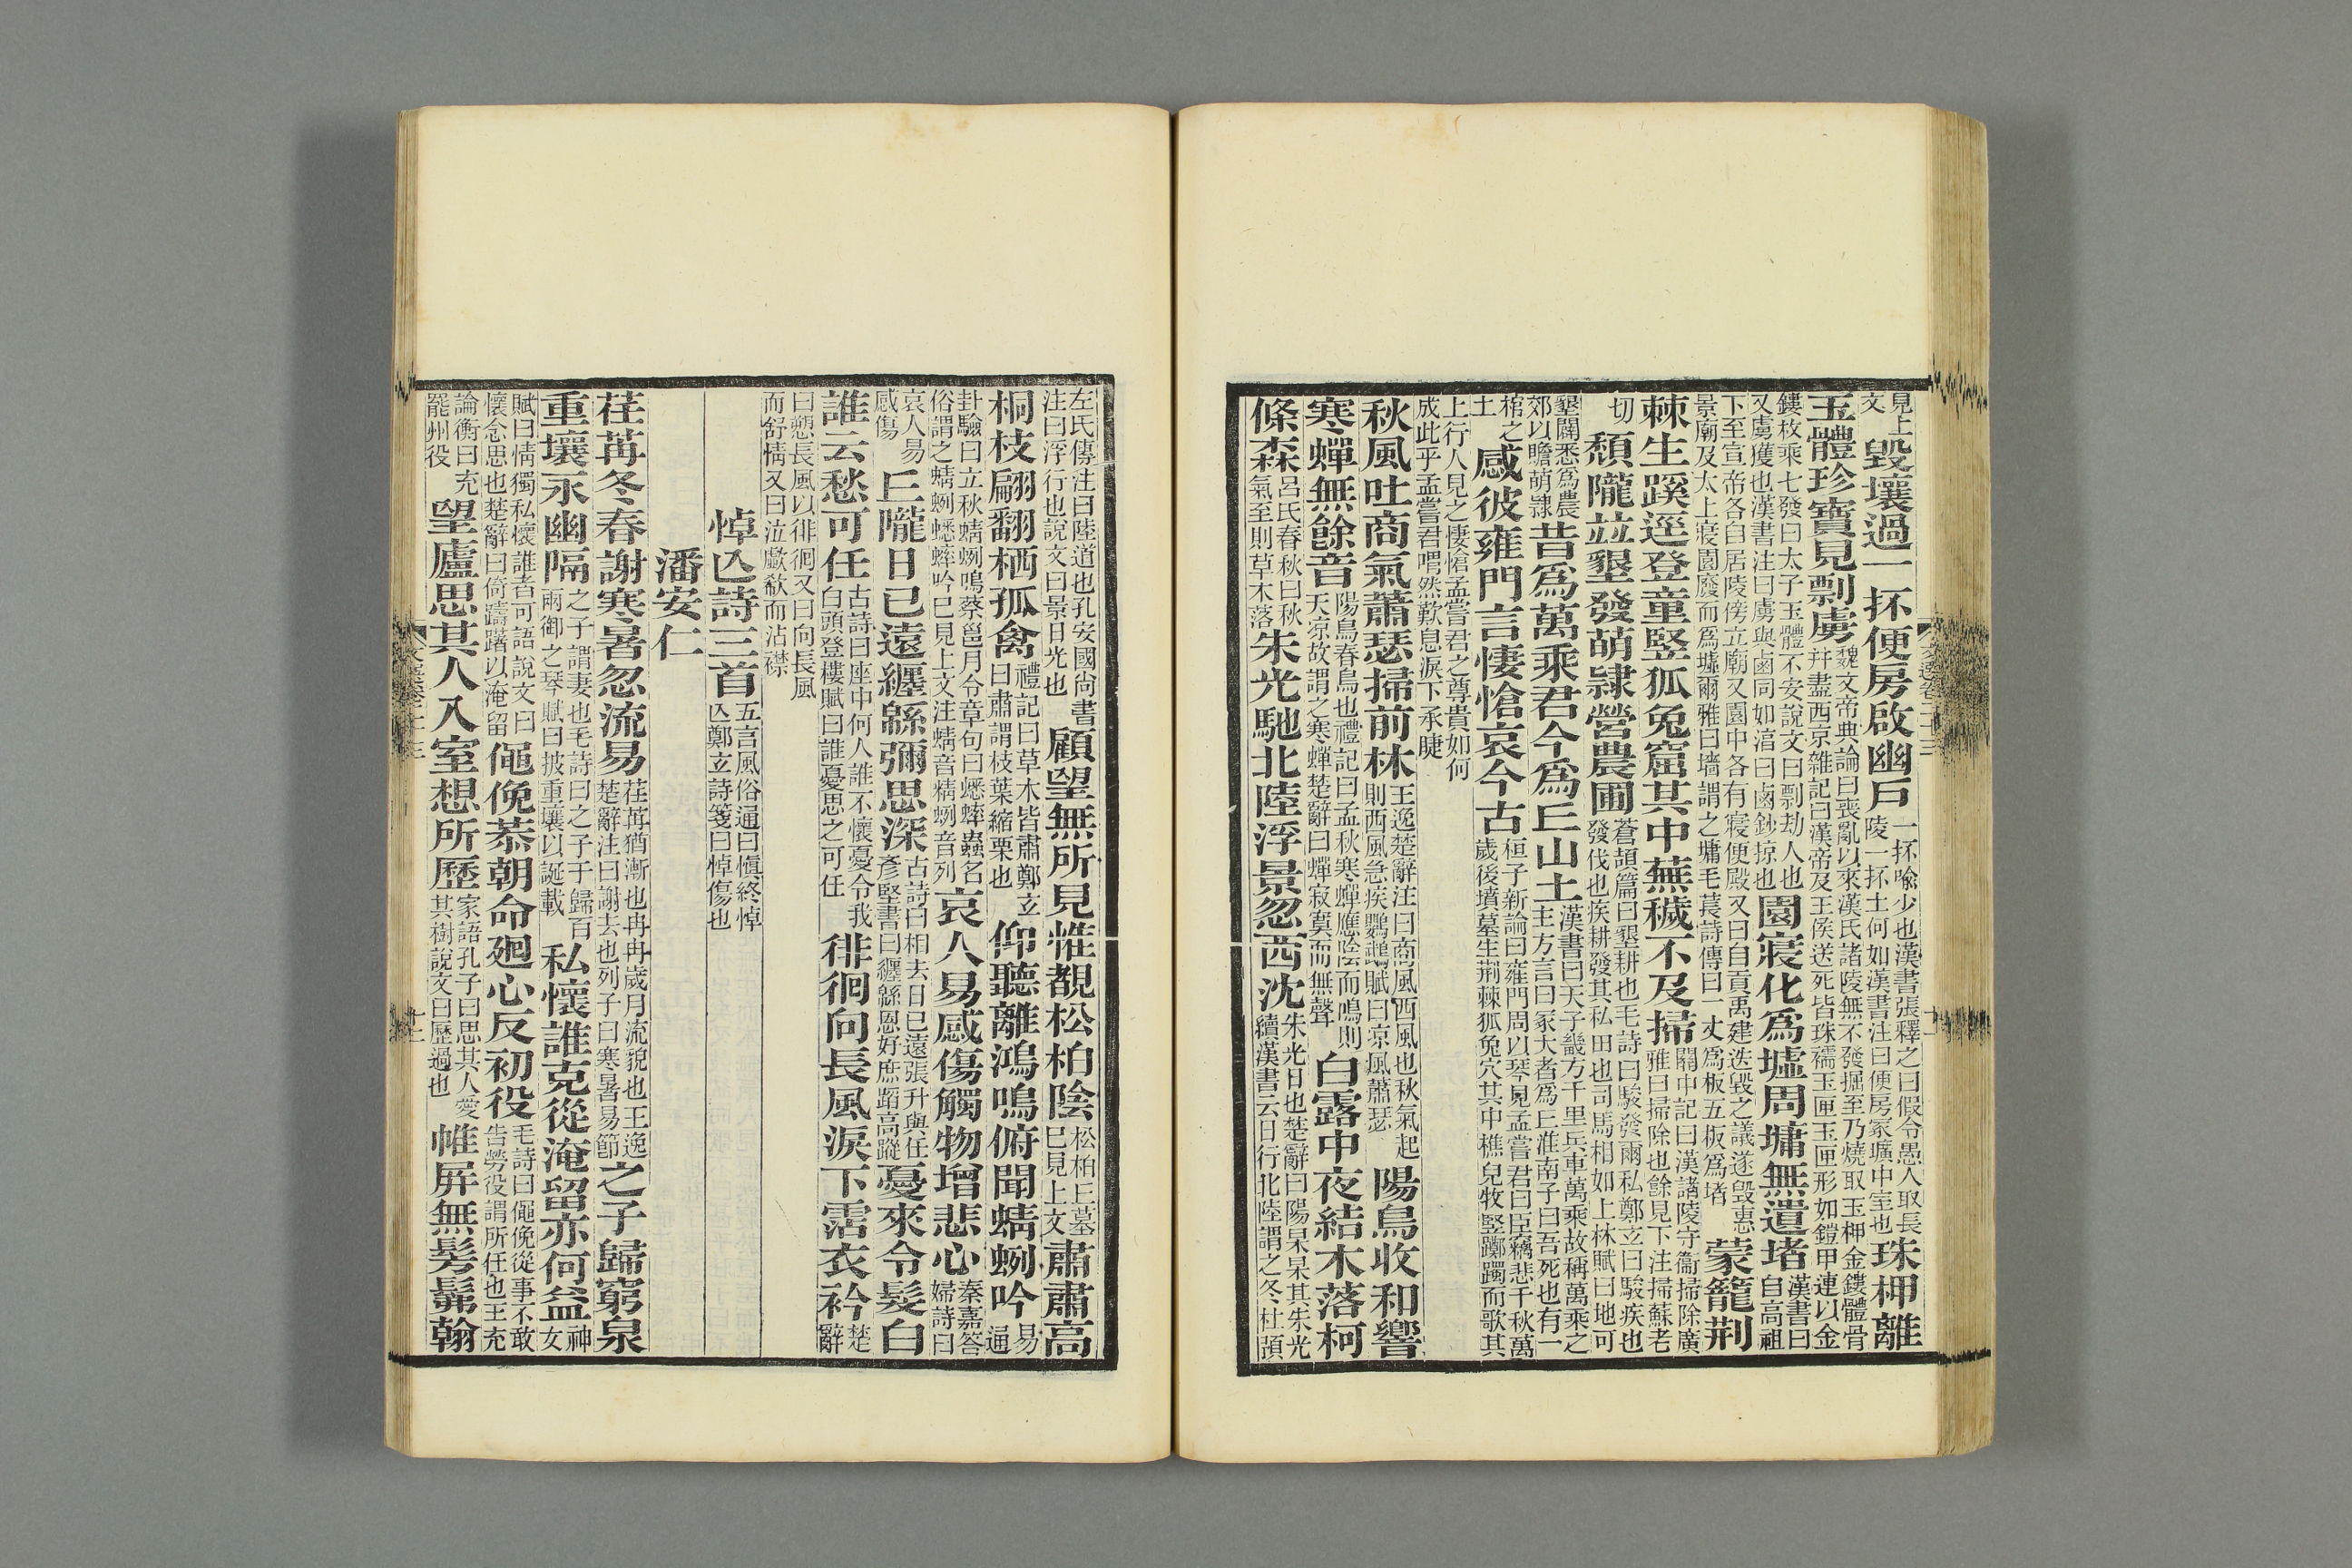 見上文毀壤過一抔便房啟幽戶一抔喻少也漢書張釋之曰假令愚人取長陵一抔土何如漢書注曰便房冢壙中室也珠柙離
玉體珍寶見剽虜魏文帝典論曰喪亂以來漢氏諸陵無不發掘至乃燒取玉柙金鏤體骨并盡西京雜記曰漢帝及王侯送死皆珠襦玉匣玉匣形如鎧甲連以金
鏤枚乘七發曰太子玉體不安說文曰剽劫人也又虜獲也漢書注曰虜與鹵同如淳曰鹵鈔掠也園寢化爲墟周墉無遺堵漢書曰自高祖
下至宣帝各自居陵傍立廟又園中各有寢便殿又曰自貢禹建迭毀之議遂毀惠景廟及太上寢園廢而爲墟爾雅曰墻謂之墉毛萇詩傳曰一丈爲板五板爲堵蒙籠荆
棘生蹊逕登童豎狐兔窟其中蕪穢不及掃關中記曰漢諸陵守衞掃除廣雅曰掃除也餘見下注掃蘇老
切頹隴竝墾發萌隸營農圃蒼頡篇曰墾耕也毛詩曰駿發爾私鄭玄曰駿疾也發伐也疾耕發其私田也司馬相如上林賦曰地可
墾闢悉爲農郊以贍萌隸昔爲萬乘君今爲丘山土漢書曰天子畿方千里兵車萬乘故稱萬乘之主方言曰冢大者爲丘淮南子曰吾死也有一
棺之土感彼雍門言悽愴哀今古桓子新論曰雍門周以琴見孟嘗君曰臣竊悲千秋萬歲後墳墓生荆棘狐兔穴其中樵兒牧豎躑躅而歌其
上行人見之悽愴孟嘗君之尊貴如何成此乎孟嘗君喟然歎息淚下承睫
秋風吐商氣蕭瑟掃前林王逸楚辭注曰商風西風也秋氣起則西風急疾鸚鵡賦曰涼風蕭瑟陽鳥收和響
寒蟬無餘音陽鳥春鳥也禮記曰孟秋寒蟬應陰而鳴則天凉故謂之寒蟬楚辭曰蟬寂寞而無聲白露中夜結木落柯
條森呂氏春秋曰秋氣至則草木落朱光馳北陸浮景忽西沈朱光日也楚辭曰陽杲杲其朱光續漢書云日行北陸謂之冬杜預
左氏傳注曰陸道也孔安國尚書注曰浮行也說文曰景日光也顧望無所見惟覩松柏陰松柏丘墓已見上文肅肅高
桐枝翩翩栖孤禽禮記曰草木皆肅鄭玄曰肅謂枝葉縮栗也仰聽離鴻鳴俯聞蜻蛚吟易通
卦驗曰立秋蜻蛚鳴蔡邕月令章句曰蟋蟀蟲名俗謂之蜻蛚蟋蟀吟已見上文注蜻音精蛚音列哀人易感傷觸物增悲心秦嘉答婦詩曰
哀人易感傷丘隴日已遠纏緜彌思深古詩曰相去日已遠張升與任彥堅書曰纏緜恩好庶蹈高蹤憂來令髮白
誰云愁可任古詩曰座中何人誰不懷憂令我白頭登樓賦曰誰憂思之可任徘徊向長風淚下霑衣衿楚辭
曰愬長風以徘徊又曰向長風而舒情又曰泣歔欷而沾襟
悼亾詩三首五言風俗通曰慎終悼亾鄭玄詩箋曰悼傷也
潘安仁
荏苒冬春謝寒暑忽流易荏苒猶漸也冉冉歲月流貌也王逸楚辭注曰謝去也列子曰寒暑易節之子歸窮泉
重壤永幽隔之子謂妻也毛詩曰之子于歸百兩御之琴賦曰披重壤以誕載私懷誰克從淹留亦何益神女
賦曰情獨私懷誰者可語說文曰懷念思也楚辭曰倚躊躇以淹留僶俛恭朝命廻心反初役毛詩曰僶俛從事不敢告勞役謂所任也王充
論衡曰充罷州役望廬思其人入室想所歷家語孔子曰思其人愛其樹說文曰歷過也帷屏無髣髴翰